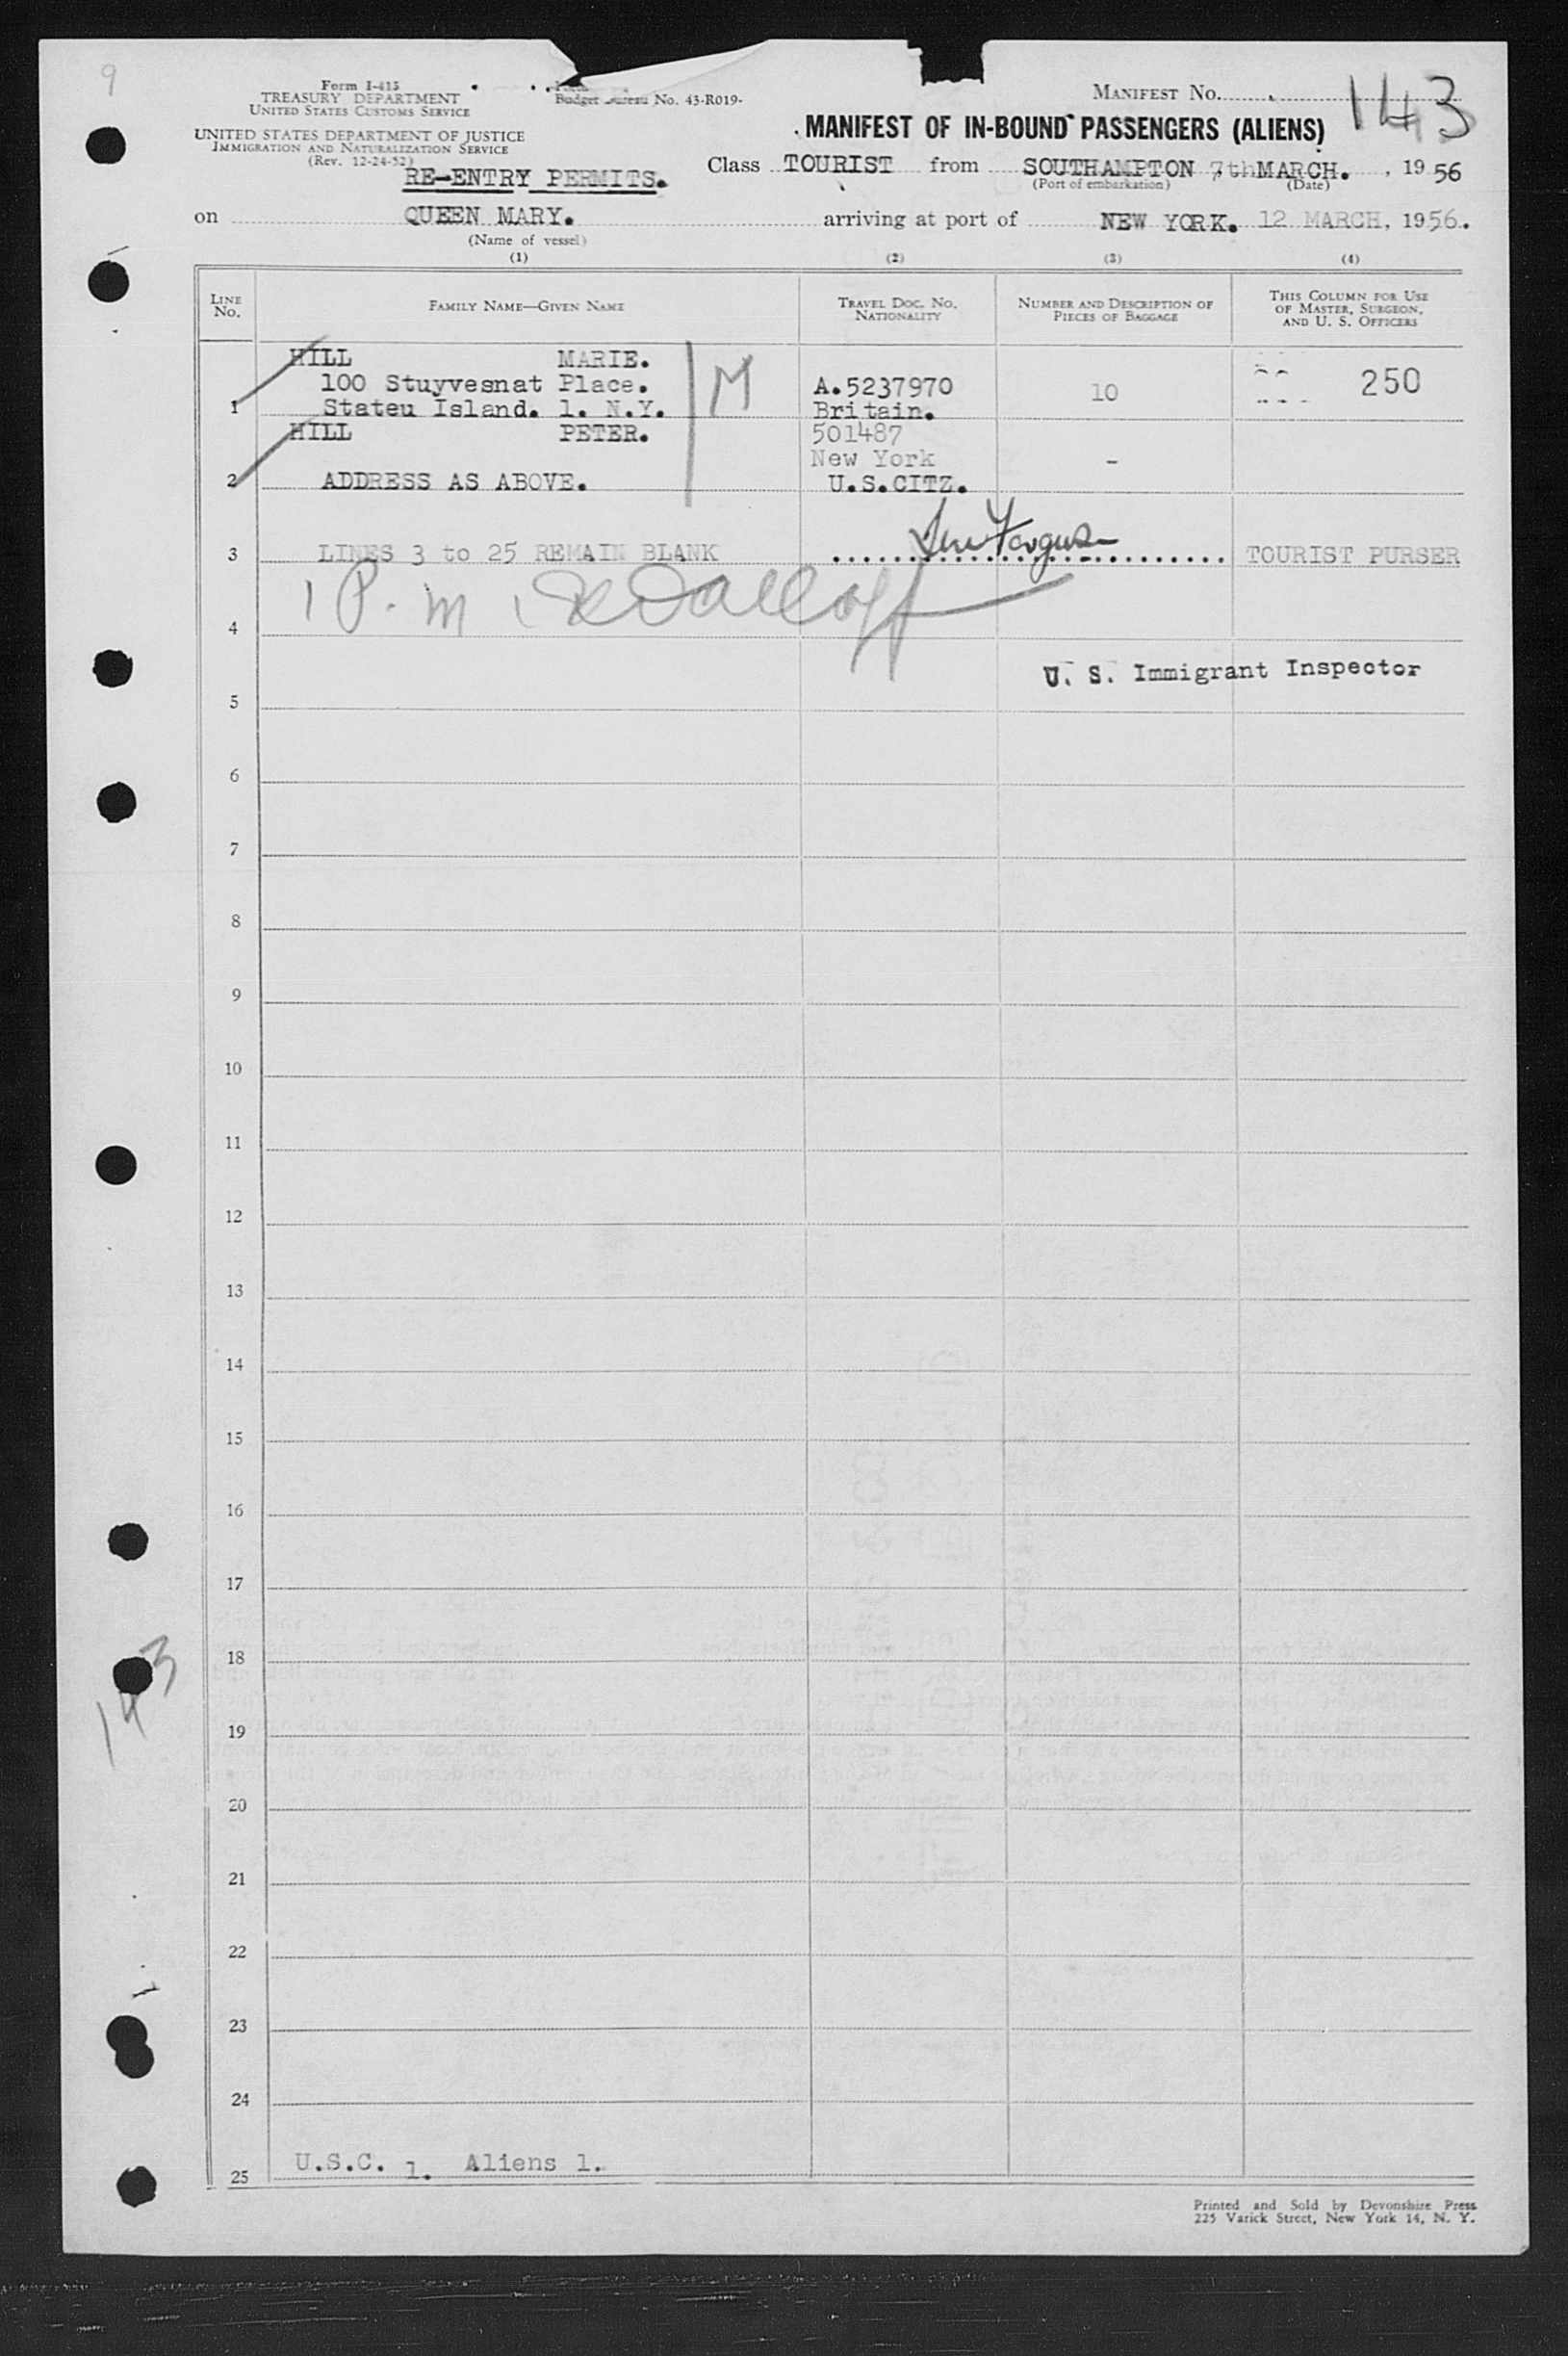 9
Form I-415
TREASURY DEPARTMENT
UNITED STATES CUSTOMS SERVICE
UNITED STATES DEPARTMENT OF JUSTICE
IMMIGRATION AND NATURALIZATION SERVICE
(Rev. 12-24-52)
Budget Bureau No. 43-R019-
MANIFEST No. 143
MANIFEST OF IN-BOUND PASSENGERS (ALIENS)
RE-ENTRY PERMITS.
Class TOURIST from SOUTHAMPTON 7th MARCH. , 1956
(Port of embarkation) (Date)
on QUEEN MARY. arriving at port of NEW YORK. 12 MARCH, 1956.
(Name of vessel)
(1) (2) (3) (4)
LINE No. FAMILY NAME—GIVEN NAME TRAVEL DOC. NO. NATIONALITY NUMBER AND DESCRIPTION OF PIECES OF BAGGAGE THIS COLUMN FOR USE OF MASTER, SURGEON, AND U. S. OFFICERS
HILL MARIE.
100 Stuyvesnat Place. M A.5237970 10 250
1 Stateu Island. 1. N.Y. Britain.
HILL PETER. 501487
New York -
2 ADDRESS AS ABOVE. U.S.CITZ.
3 LINES 3 to 25 REMAIN BLANK TOURIST PURSER
1 P. M.
4
U. S. Immigrant Inspector
5
6
7
8
9
10
11
12
13
14
15
16
17
18
143
19
20
21
22
23
24
25 U.S.C. 1. Aliens 1.
Printed and Sold by Devonshire Press
225 Varick Street, New York 14, N. Y.